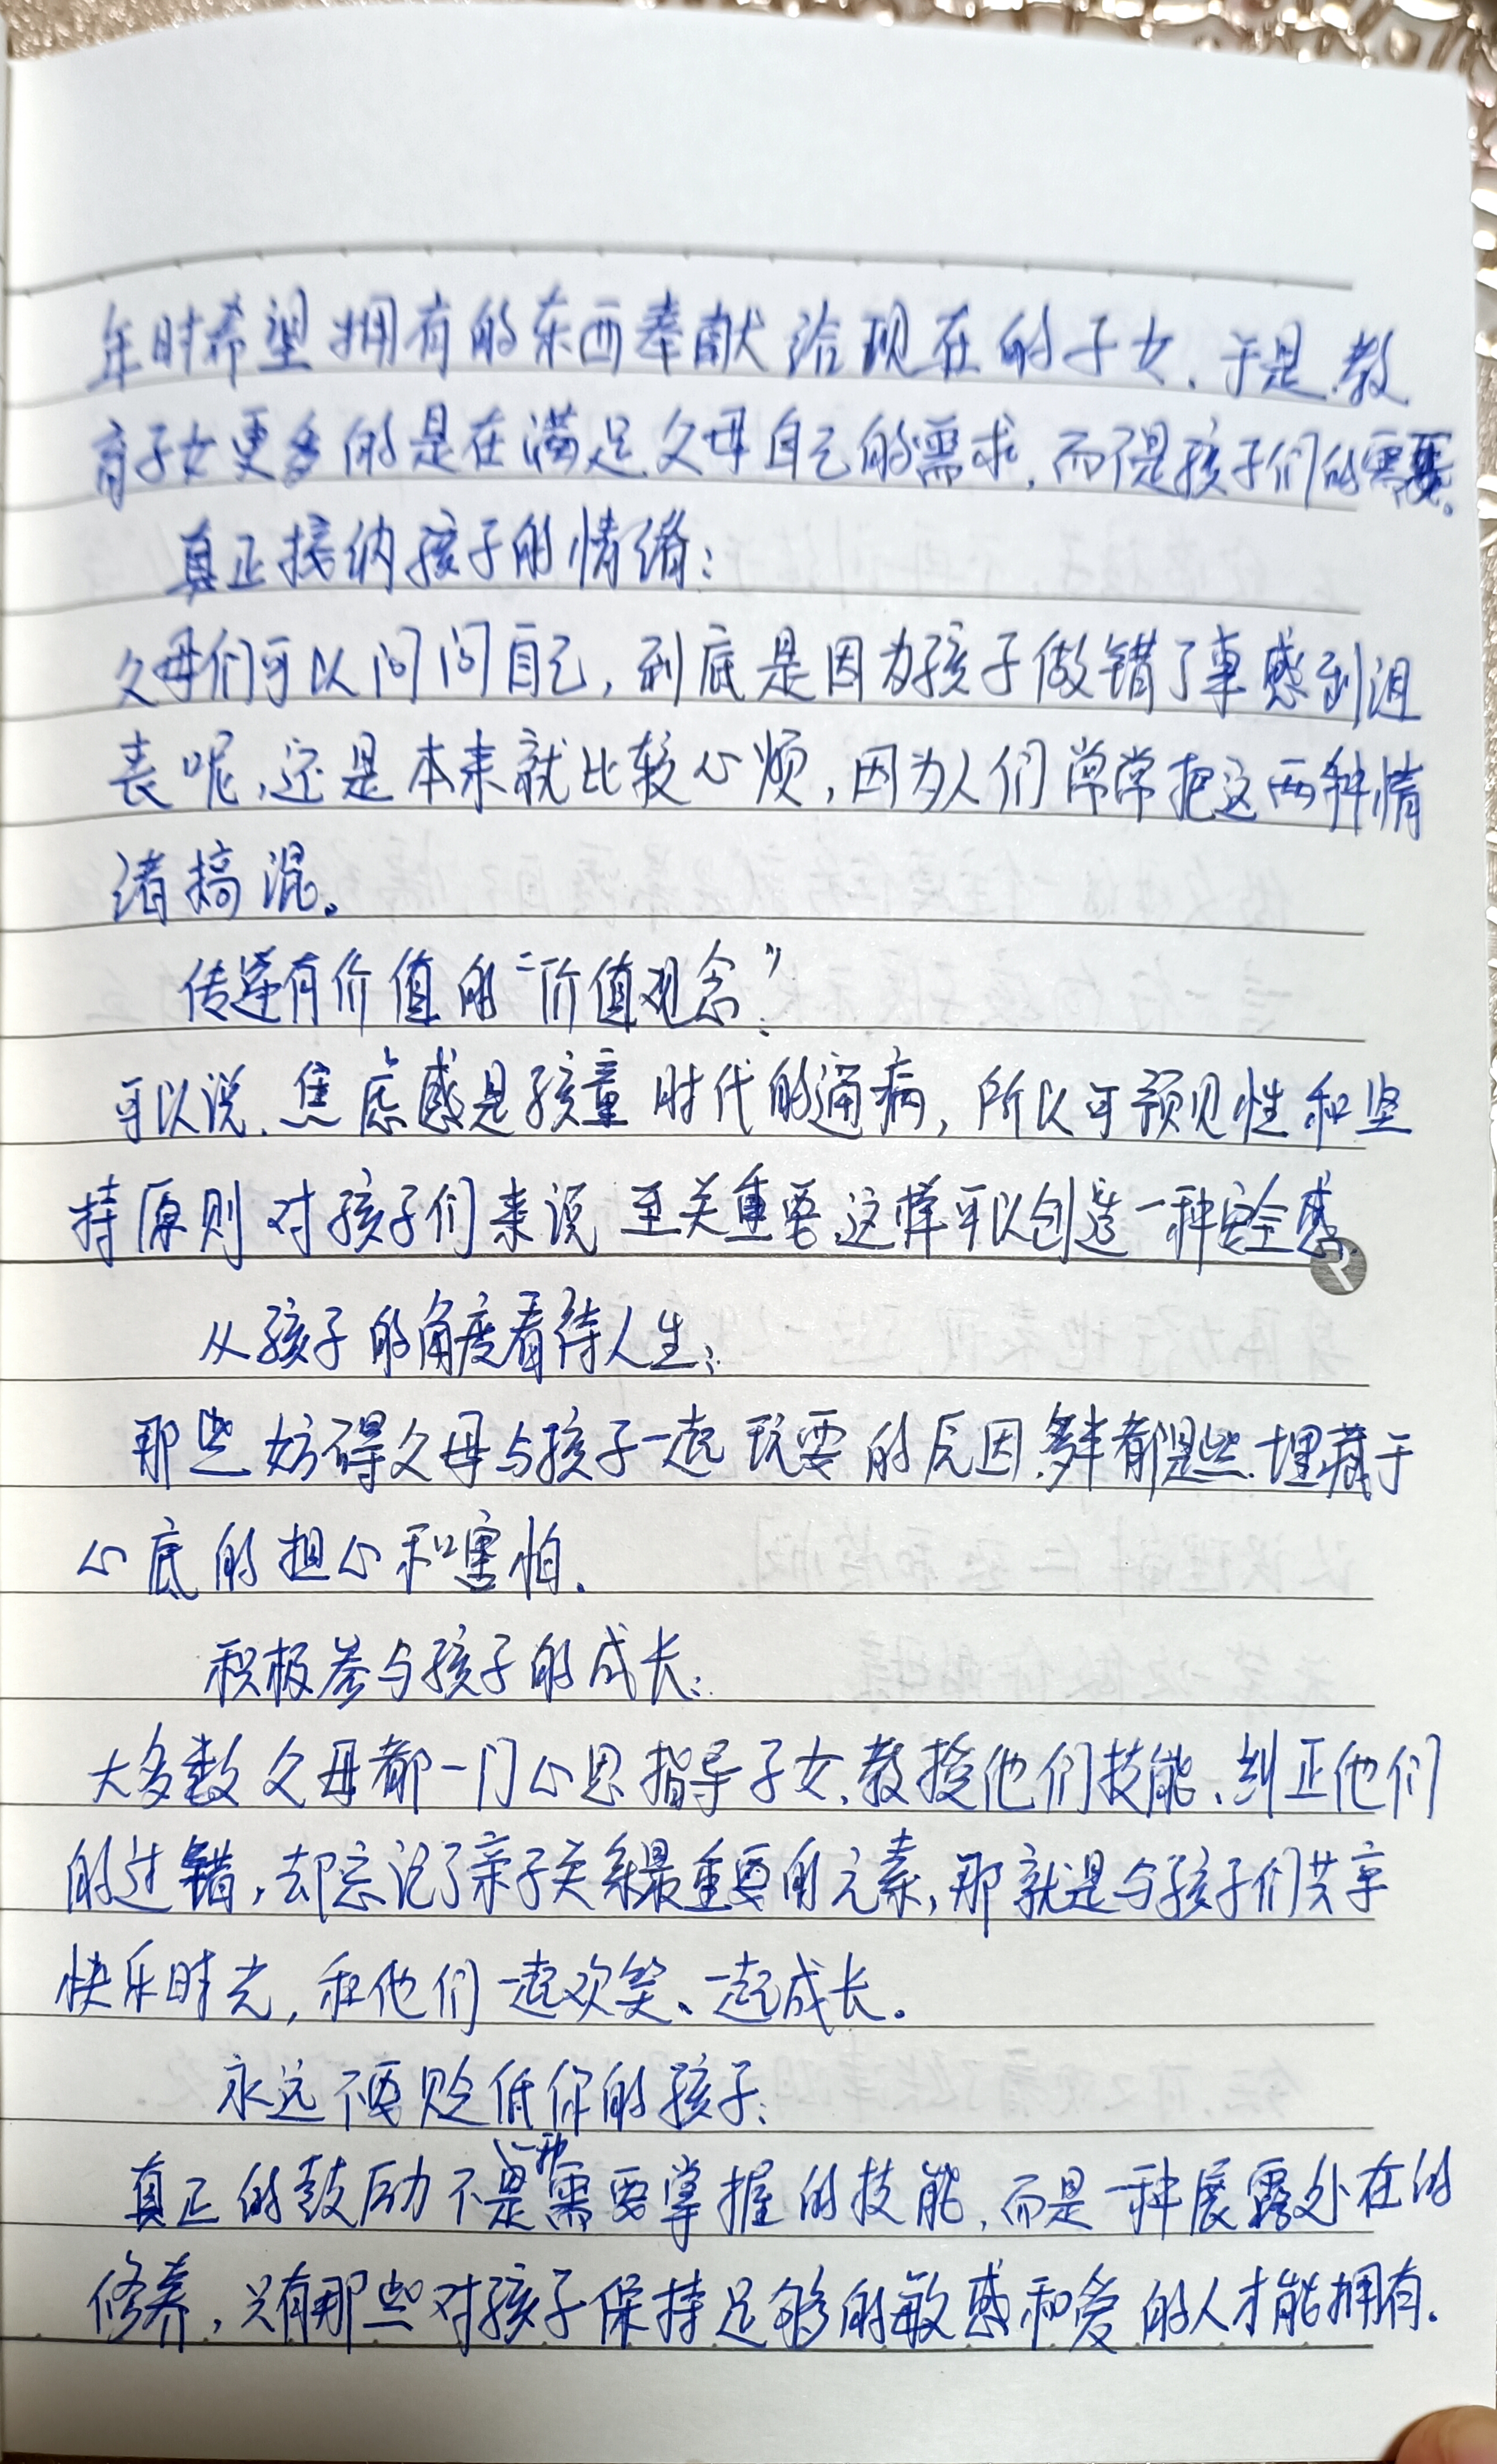 年时希望拥有的东西奉献给现在的子女、于是教
育子女更多的是在满足父母自己的需求,而不是孩子们的需要。
真正接纳孩子的情绪:
父母们可以问问自己,到底是因为孩子做错了事感到沮
丧呢,还是本来就比较心烦,因为人们常常把这两种情
绪搞混。
传递有价值的“价值观念”:
可以说、焦虑感是孩童时代的通病,所以可预见性和坚
持原则对孩子们来说至关重要,这样可以创造一种安全感.
从孩子的角度看待人生:
那些妨碍父母与孩子一起玩耍的原因,多半都是些埋藏于
心底的担心和害怕.
积极参与孩子的成长:
大多数父母都一门心思指导子女、教授他们技能、纠正他们
的过错,却忘记了亲子关系最重要的元素,那就是与孩子们共享
快乐时光,和他们一起欢笑、一起成长。
永远不要贬低你的孩子:
真正的鼓励不是一种需要掌握的技能,而是一种展露外在的
修养,只有那些对孩子保持足够的敏感和爱的人才能拥有.